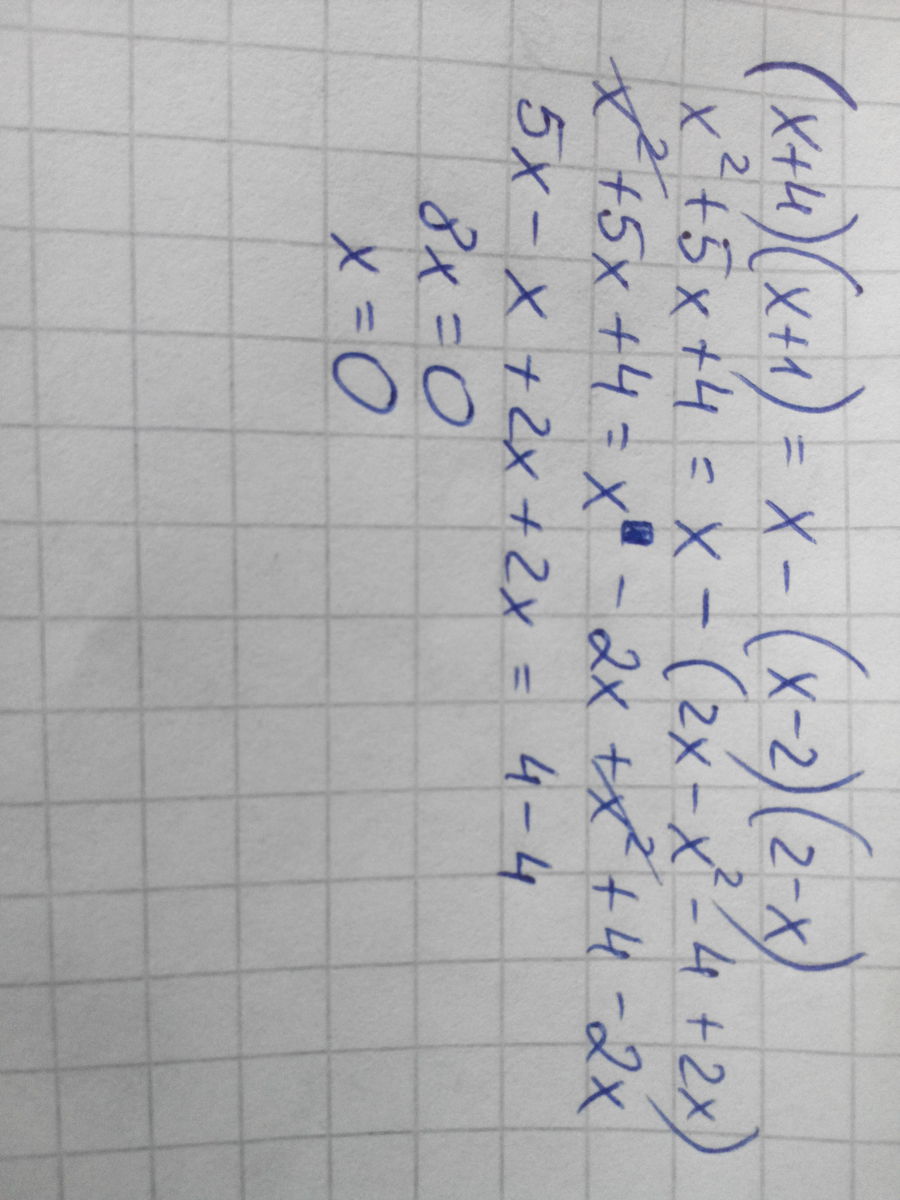 (x+4)(x+1) = x - (x-2)(2-x)
x²+5x+4 = x - (2x - x² - 4 + 2x)
x²+5x+4 = x - 2x + x² + 4 - 2x
5x - x + 2x + 2x = 4 - 4
8x = 0
x = 0